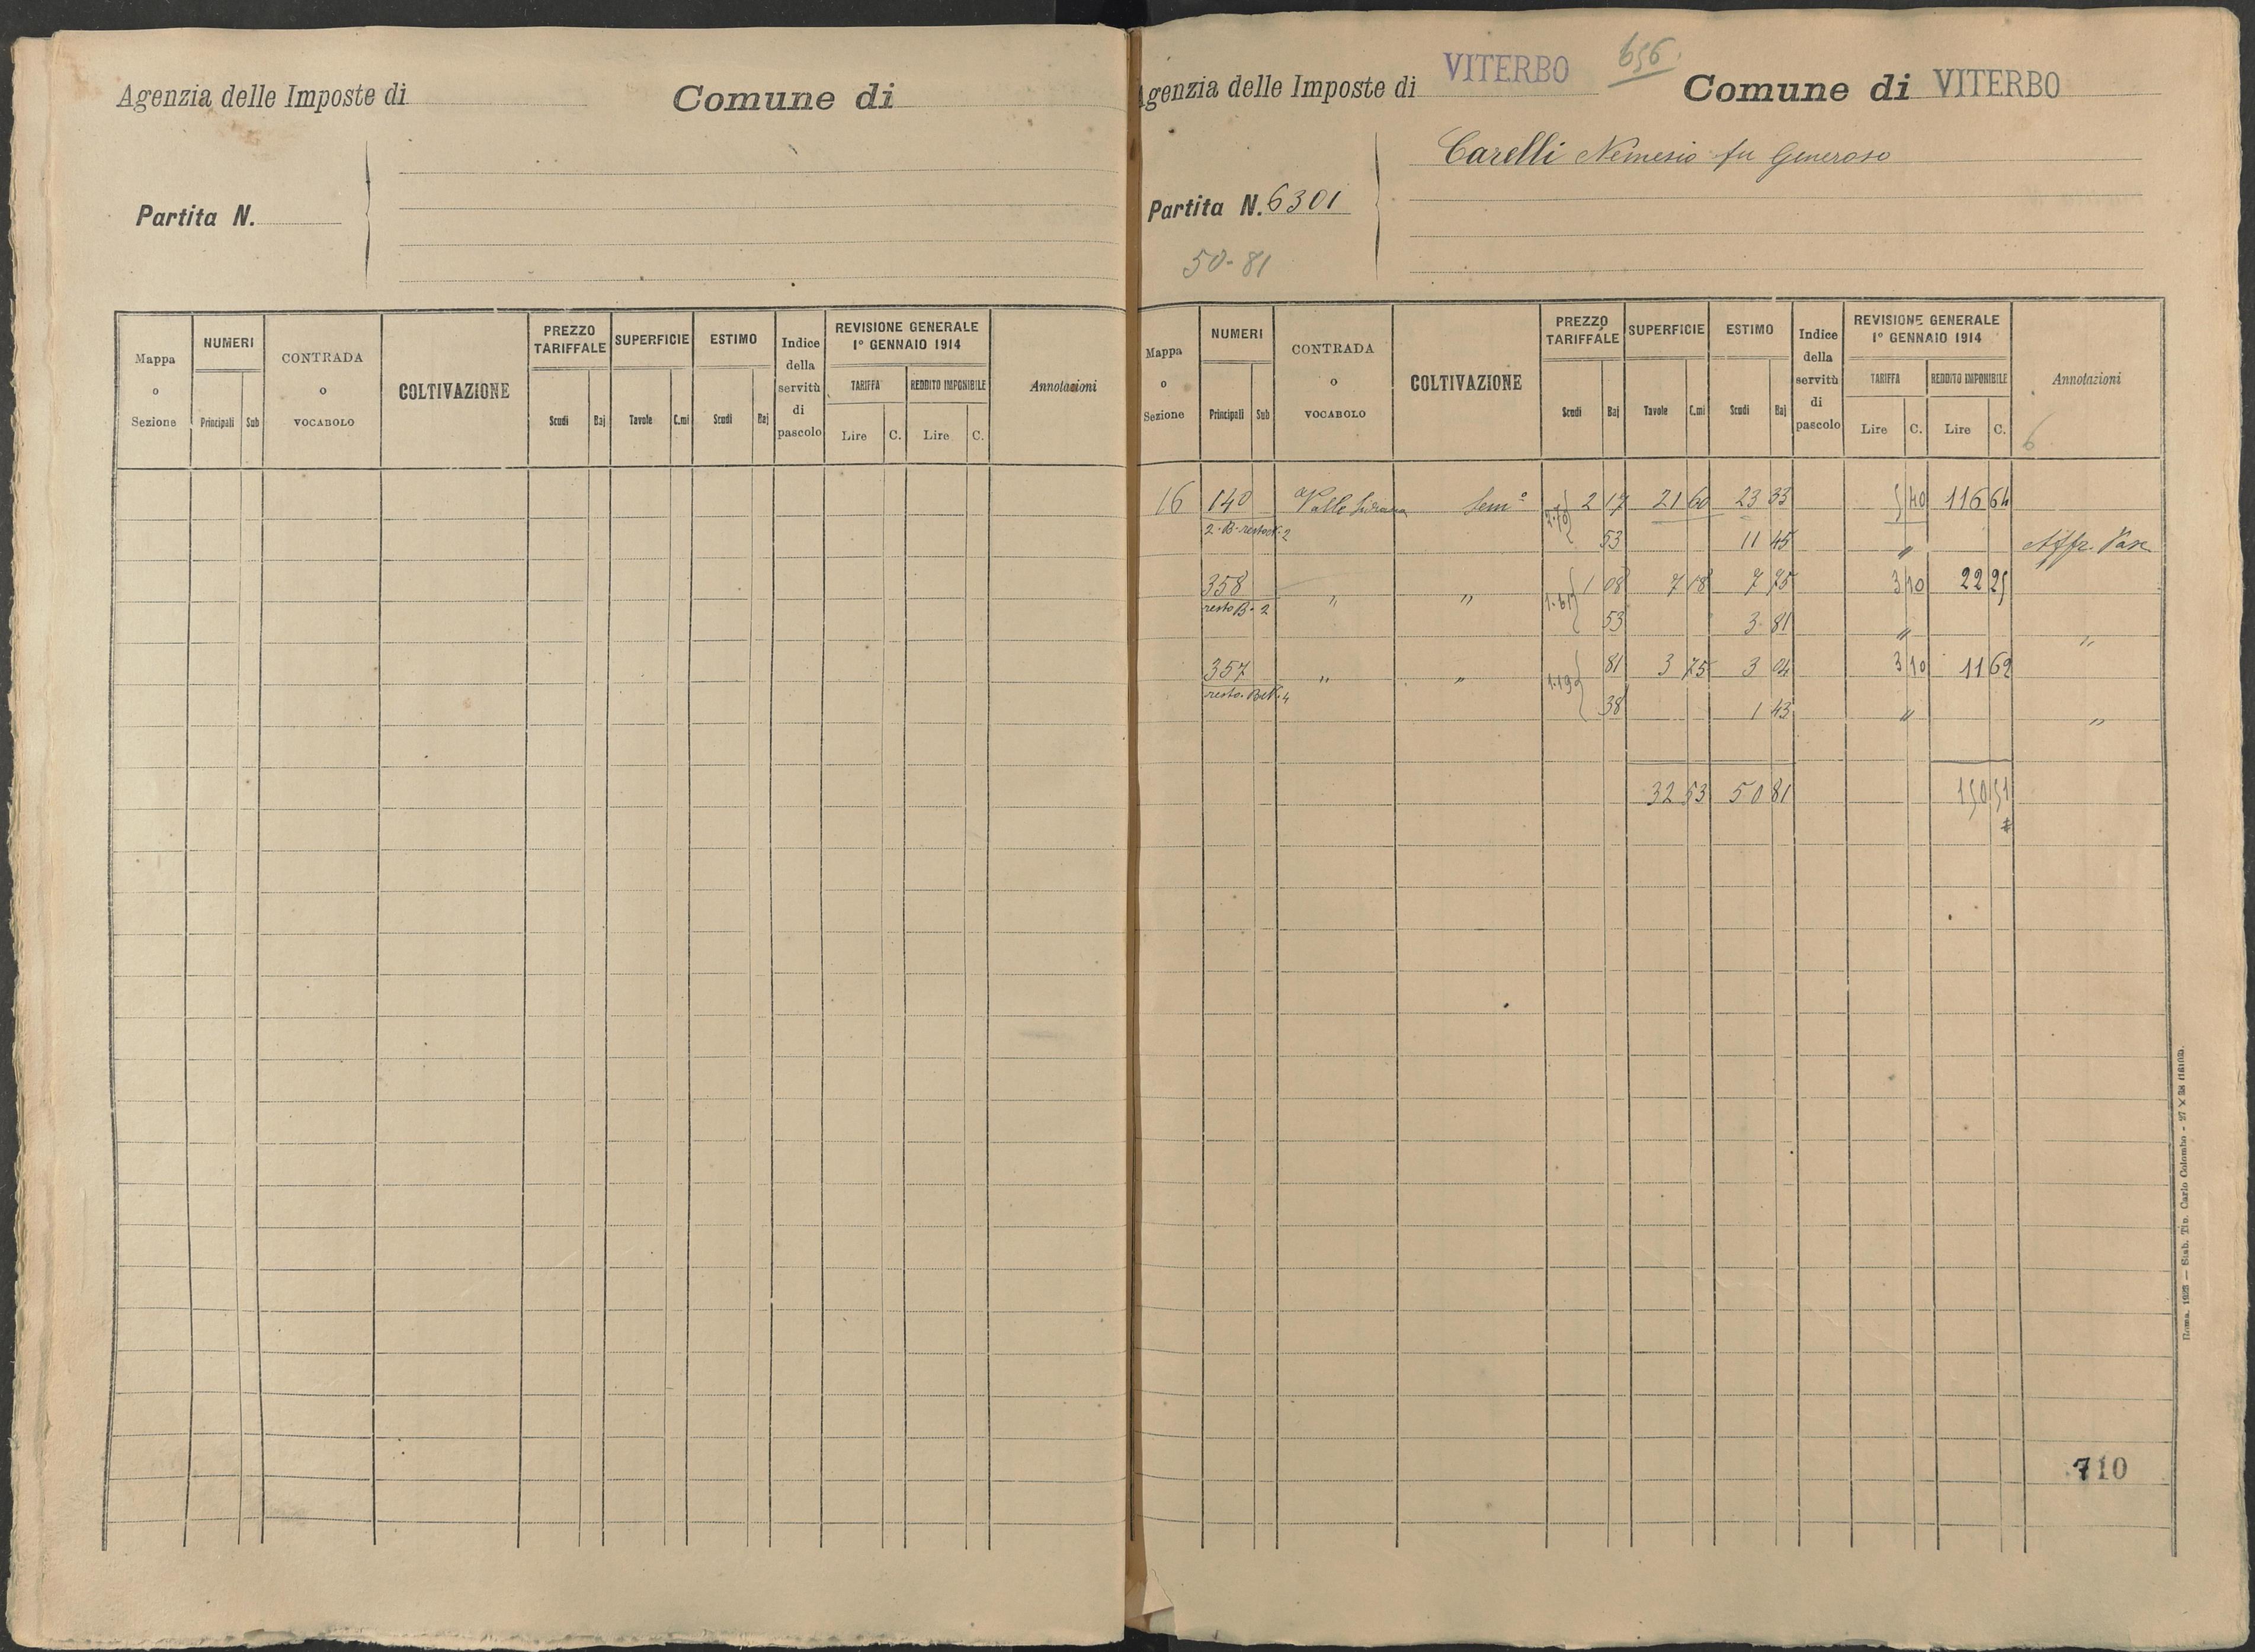 Agenzia delle Imposte di
Comune di
Partita N.
Mappa o Sezione
NUMERI
Principali Sub
CONTRADA o VOCABOLO
COLTIVAZIONE
PREZZO TARIFFALE
Scudi Baj
SUPERFICIE
Tavole C.mi
ESTIMO
Scudi Baj
Indice della servitù di pascolo
REVISIONE GENERALE
1° GENNAIO 1914
TARIFFA REDDITO IMPONIBILE
Lire C. Lire C.
Annotazioni
656
Agenzia delle Imposte di VITERBO Comune di VITERBO
Carelli Nemesio fu Generoso
Partita N. 6301
50-81
Mappa o Sezione
NUMERI
Principali Sub
CONTRADA o VOCABOLO
COLTIVAZIONE
PREZZO TARIFFALE
Scudi Baj
SUPERFICIE
Tavole C.mi
ESTIMO
Scudi Baj
Indice della servitù di pascolo
REVISIONE GENERALE
1° GENNAIO 1914
TARIFFA REDDITO IMPONIBILE
Lire C. Lire C.
Annotazioni
6
16 140 Valle Sem° 2.70 2 17 21 60 23 33 5 40 116 64
2. B. resto 2
53 11 45 " Affr. Pasc.
358 " " 1.61 1 08 7 18 7 75 3 10 22 25
resto B. 2
53 3 81 " "
357 " " 1.19 81 3 75 3 04 3 10 11 62
resto. 4
38 1 43 " "
32 53 50 81 150 51
710
Roma. 1923 — Stab. Tip. Carlo Colombo - 27 X